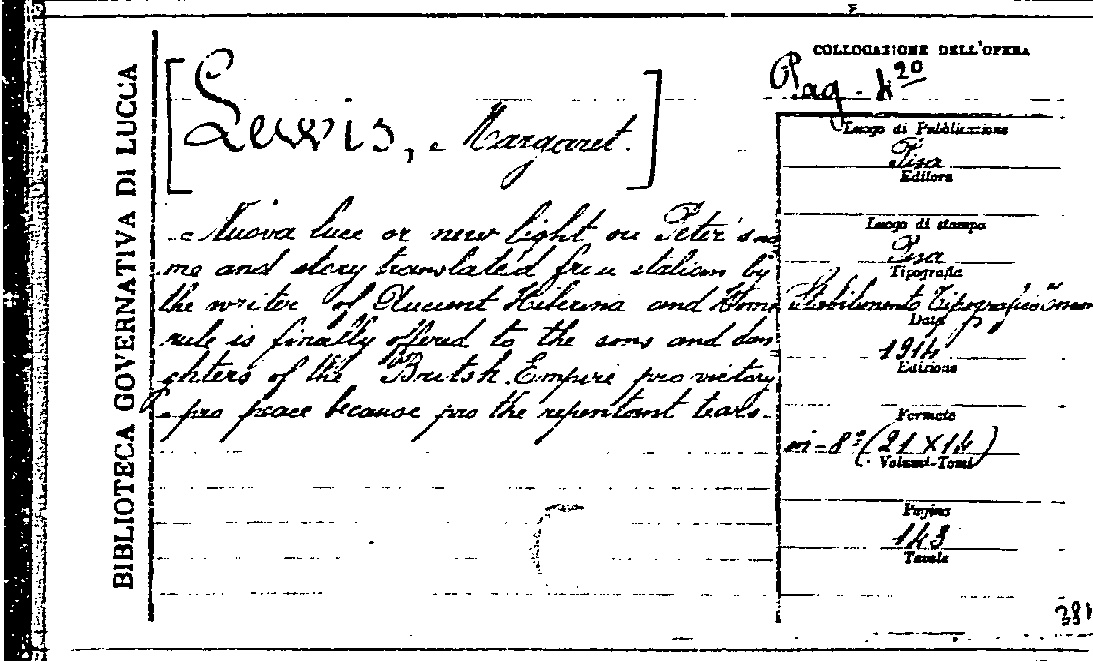 BIBLIOTECA GOVERNATIVA DI LUCCA
[Lewis, Margaret.]
Nuova luce or new light on Peter's na
me and story translated from italian by
the writer of Hibernia and Home
rule is finally offered to the sons and dau
ghters of the British Empire pro victory
pro peace because pro the repentant tears.
COLLOCAZIONE DELL'OPERA
Pag. 4 20
Luogo di Pubblicazione
Pisa
Editore
Luogo di stampa
Pisa
Tipografia
Stabilimento Tipografico
Data
1914
Edizione
Formato
in-8° (21 X 14)
Volumi-Tomi
Pagine
143
Tavole
381